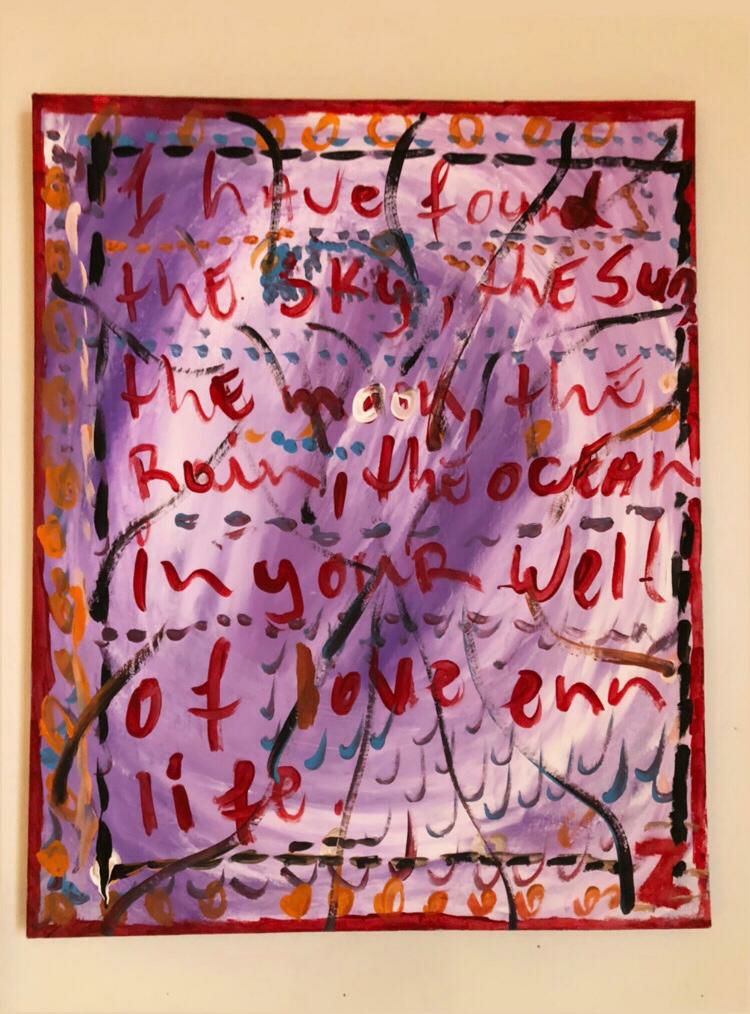 I have found
the SKy, thE Sun
the moon, the
Rain, the OCEAN
in youR Well
of love enn
life.
Z